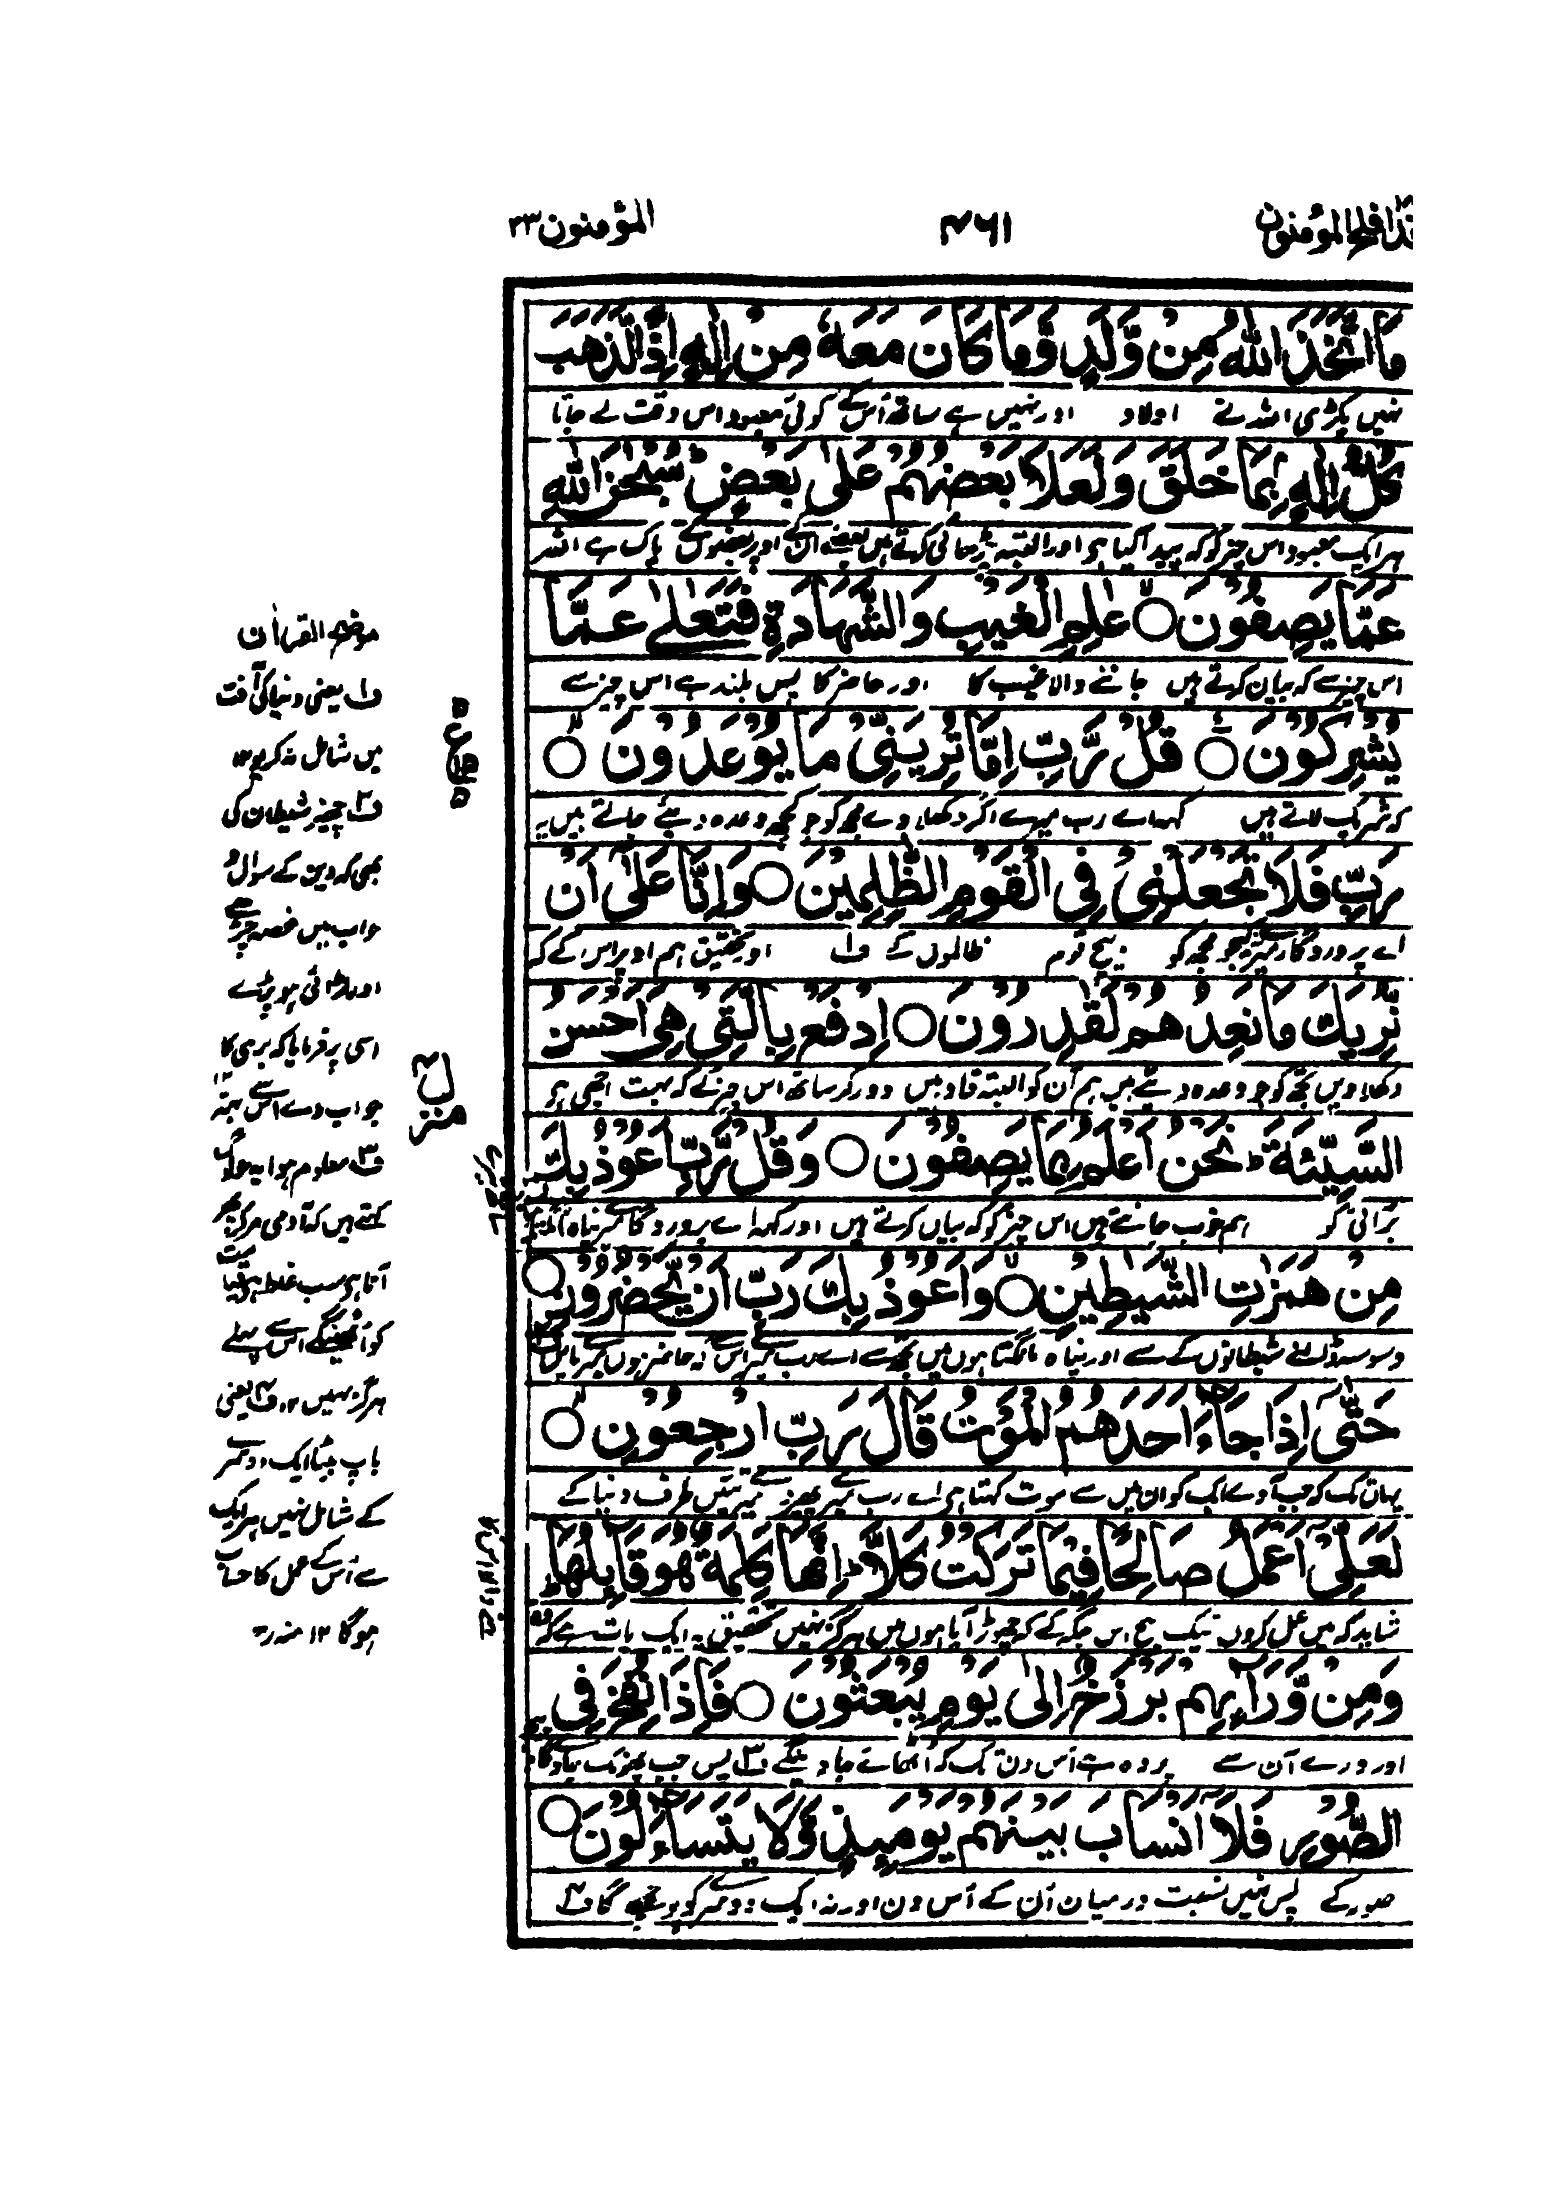 قد افلح المؤمنون
۴۶۱
المؤمنون ۲۳
مَا اتَّخَذَ اللّٰهُ مِنْ وَّلَدٍ وَّمَا كَانَ مَعَهٗ مِنْ اِلٰهٍ اِذًا لَّذَهَبَ
نہیں پکڑی اللہ نے اولاد اور نہیں ہے ساتھ اُس کے کوئی معبود اس وقت لے جاتا
كُلُّ اِلٰهٍۭ بِمَا خَلَقَ وَلَعَلَا بَعْضُهُمْ عَلٰى بَعْضٍ ؕ سُبْحٰنَ اللّٰهِ
ہر ایک معبود اس چیز کو کہ پیدا کیا ہی اور البتہ چڑھائی کرتے ہیں بعضے اُن کے اوپر بعضوں کے پاک ہے اللہ
عَمَّا يَصِفُوْنَ ○ عٰلِمِ الْغَيْبِ وَالشَّهَادَةِ فَتَعٰلٰى عَمَّا
اس چیز سے کہ بیان کرتے ہیں جاننے والا غیب کا اور حاضر کا پس بلند ہے اس چیز سے
يُشْرِكُوْنَ ○ قُلْ رَّبِّ اِمَّا تُرِيَنِّيْ مَا يُوْعَدُوْنَ ○
کہ شریک لاتے ہیں کہہ اے رب میرے اگر دکھلاوے مجھ کو جو کچھ وعدہ دیئے جاتے ہیں یہ
رَبِّ فَلَا تَجْعَلْنِيْ فِي الْقَوْمِ الظّٰلِمِيْنَ ○ وَاِنَّا عَلٰى اَنْ
اے پروردگار میرے پس نہ کیجیو مجھ کو بیچ قوم ظالموں کے ف۱ اور تحقیق ہم اوپر اس کے کہ
نُّرِيَكَ مَا نَعِدُهُمْ لَقٰدِرُوْنَ ○ اِدْفَعْ بِالَّتِيْ هِيَ اَحْسَنُ
دکھلاویں تجھ کو جو وعدہ دیتے ہیں ہم اُن کو البتہ قادر ہیں دور کر ساتھ اس چیز کے کہ بہت اچھی ہی
السَّيِّئَةَ ؕ نَحْنُ اَعْلَمُ بِمَا يَصِفُوْنَ ○ وَقُلْ رَّبِّ اَعُوْذُ بِكَ
بُرائی کو ہم خوب جانتے ہیں اس چیز کو کہ بیاں کرتے ہیں اور کہہ اے پروردگار میرے پناہ
مِنْ هَمَزٰتِ الشَّيٰطِيْنِ ○ وَاَعُوْذُ بِكَ رَبِّ اَنْ يَّحْضُرُوْنِ ○
وسوسہ ڈالنے شیطانوں کے سے اور پناہ مانگتا ہوں میں تجھ سے اے رب میرے اس سے کہ حاضر ہوں میرے پاس
حَتّٰى اِذَا جَآءَ اَحَدَهُمُ الْمَوْتُ قَالَ رَبِّ ارْجِعُوْنِ ○
یہاں تک کہ جب آوے ایک کو ان میں سے موت کہتا ہی اے رب میرے پھیر دے مجھے تئیں طرف دنیا کے
لَعَلِّيْ اَعْمَلُ صَالِحًا فِيْمَا تَرَكْتُ كَلَّا ؕ اِنَّهَا كَلِمَةٌ هُوَ قَآئِلُهَا ؕ
شاید کہ میں عمل کروں نیک بیچ اس جگہ کے کہ چھوڑ آیا ہوں میں ہرگز نہیں تحقیق یہ ایک بات ہے کہ
وَمِنْ وَّرَآئِهِمْ بَرْزَخٌ اِلٰى يَوْمِ يُبْعَثُوْنَ ○ فَاِذَا نُفِخَ فِي
اور ورے اُن سے پردہ ہے اُس دن تک کہ اُٹھائے جاوینگے ف۳ پس جب پھونکا جاوےگا بیچ
الصُّوْرِ فَلَآ اَنْسَابَ بَيْنَهُمْ يَوْمَئِذٍ وَّلَا يَتَسَآءَلُوْنَ ○
صور کے پس نہیں نسبت درمیان اُن کے اُس دن اور نہ ایک دوسرے کو پوچھے گا ف۴
موضح القراٰن
ف۱ یعنی دنیا کی آفت
میں شامل نہ کریو ۱۲
ف۲ چھیڑ شیطان کی
یہی کہ دین کے سوال و
جواب میں غصہ چڑھے
اور لڑائی ہو پڑے
اسی پر فرمایا کہ بُری کا
جواب دے اُس سے بہتر ۱۲
ف۳ معلوم ہوا یہ جو لوگ
کہتے ہیں کہ آدمی مر کر پھر
آتا ہی سب غلط ہی قیامت
کو اُٹھینگے اس سے پہلے
ہرگز نہیں ۱۲ ف۴ یعنی
باپ بیٹا ایک دوسرے
کے شامل نہیں ہر ایک
سے اُس کے عمل کا حساب
ہوگا ۱۲ منہ رح
منزل ۴